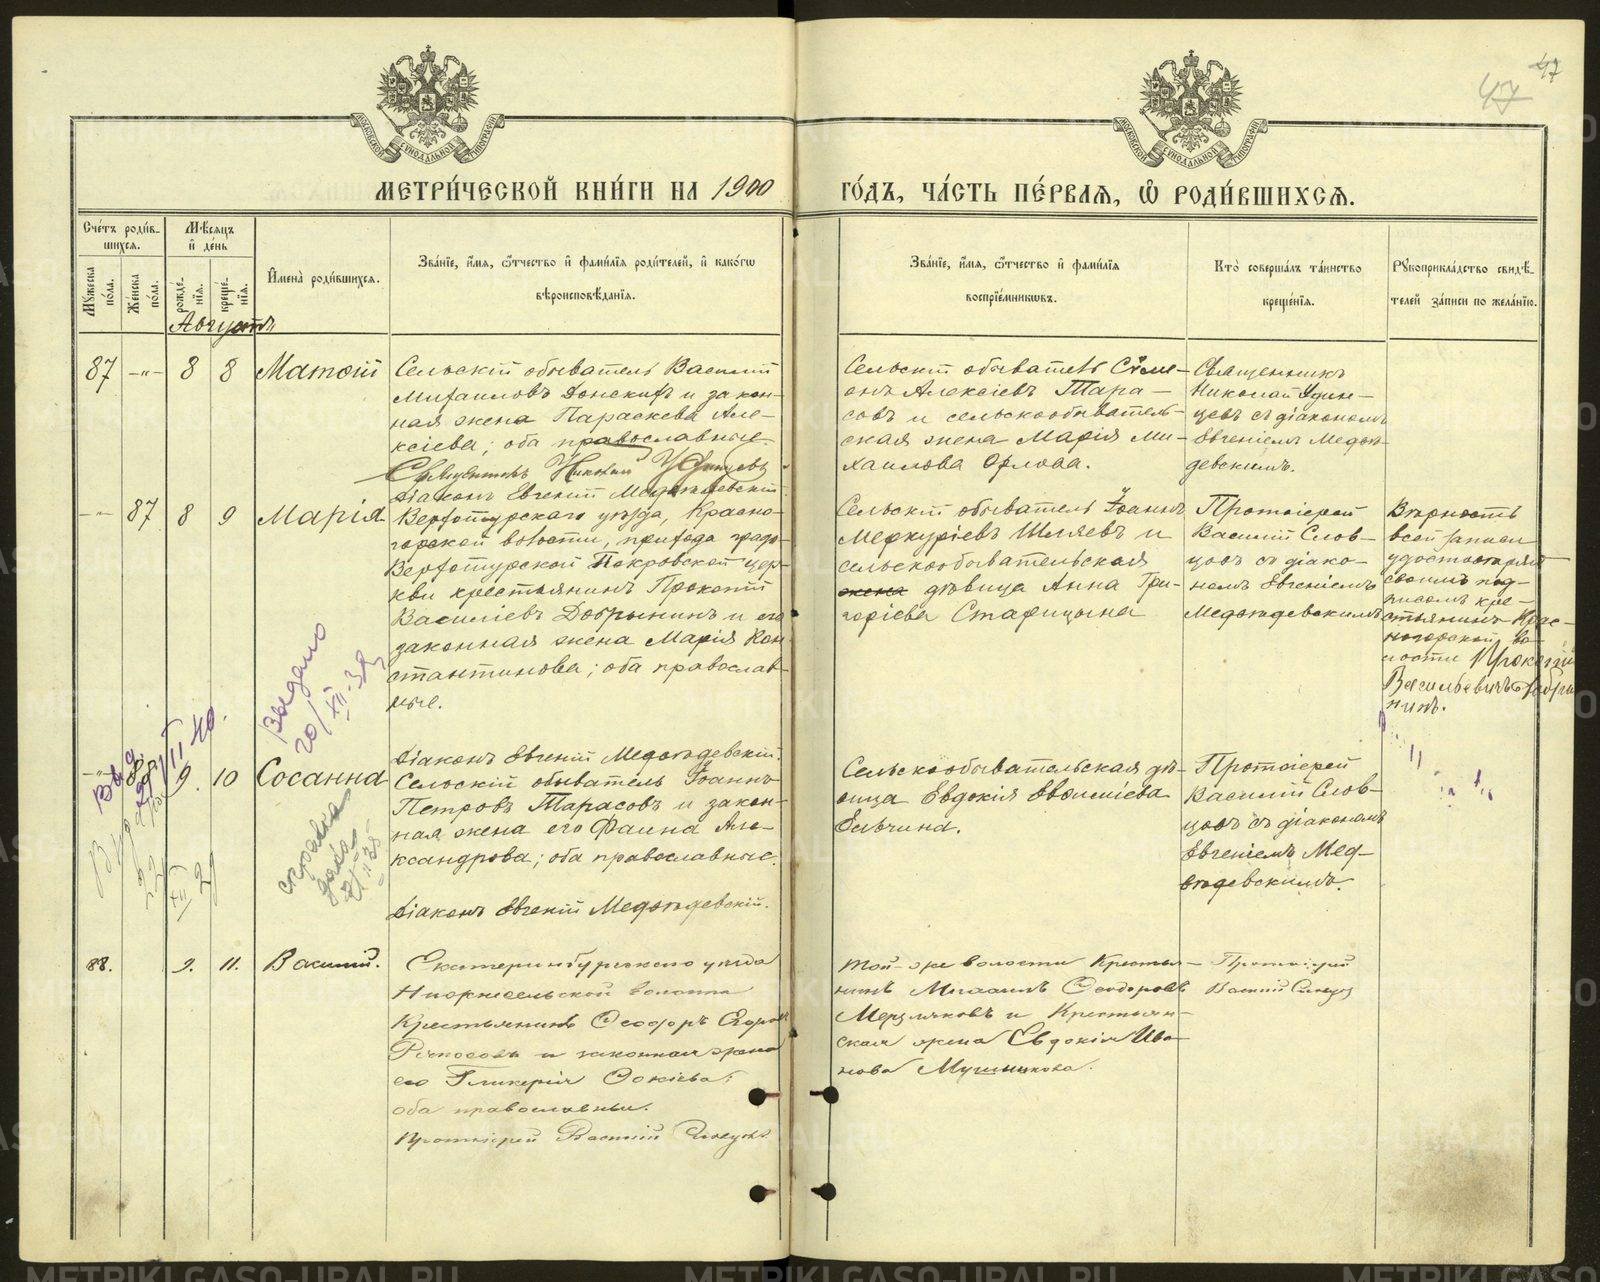 47
47
МОСКОВСКОЙ СѴНОДАЛЬНОЙ ТИПОГРАФІИ
МОСКОВСКОЙ СѴНОДАЛЬНОЙ ТИПОГРАФІИ
МЕТРИ́ЧЕСКОЙ КНИ́ГИ НА 1900
ГО́ДЪ, ЧА́СТЬ ПЕ́РВАЯ, Ѽ РОДИ́ВШИХСЯ.
Сче́тъ роди́в-
шихся.
Мꙋ́жеска по́ла.
Же́нска по́ла.
Мѣ́сяцъ
и҆ де́нь
рожде́-
нїѧ.
креще́-
нїѧ.
И҆мена̀ роди́вшихся.
Зва́нїе, и҆́мя, ѻ҆́тчество и҆ фами́лїя роди́телей, и҆ како́гѡ
вѣроисповѣ́данїя.
Зва́нїе, и҆́мя, ѻ҆́тчество и҆ фами́лїя
воспрїе́мникѡвъ.
Кто̀ соверша́лъ та́инство
креще́нїя.
Рꙋкоприкла́дство свидѣ́-
телей за́писи по жела́нїю.
Августъ
87 -"- 8 8 Матѳій
Сельскій обыватель Василій
Михаиловъ Донскихъ и закон-
ная жена Параскева Але-
ксіева; оба православные.
Священникъ Николай Удинцевъ
Діаконъ Евгеній Медвѣдевскій.
Сельскій обыватель Сѵме-
онъ Алексіевъ Тара-
совъ и сельскообыватель-
ская жена Марія Ми-
хаилова Орлова.
Священникъ
Николай Удин-
цевъ съ діакономъ
Евгеніемъ Медвѣ-
девскимъ.
-"- 87 8 9 Марія
Верхотурскаго уѣзда, Красно-
горской волости, прихода градо-
Верхотурской Покровской цер-
кви крестьянинъ Прокопій
Василіевъ Добрынинъ и его
законная жена Марія Кон-
стантинова; оба православ-
ные.
Діаконъ Евгеній Медвѣдевскій.
Сельскій обыватель Іоаннъ
Меркуріевъ Шиляевъ и
сельскообывательская
жена дѣвица Анна Гри-
горіева Старицына
Протоіерей
Василій Слов-
цовъ съ діако-
номъ Евгеніемъ
Медвѣдевскимъ
Вѣрность
всей записи
удостовѣряю
своимъ под-
писомъ кре-
стьянинъ Крас-
ногорской во-
лости Прокопій
Васильевичъ Добры-
нинъ.
Выдано
20/XII-38
-"- 88 9. 10 Сосанна
Сельскій обыватель Іоаннъ
Петровъ Тарасовъ и закон-
ная жена его Фаина Але-
ксандрова; оба православные.
Діаконъ Евгеній Медвѣдевскій.
Сельскообывательская дѣ-
вица Евдокія Евѳиміева
Протоіерей
Василій Слов-
цовъ съ діакономъ
Евгеніемъ Мед-
вѣдевскимъ.
справка
дана
88. 9. 11. Василій.
Екатеринбургскаго уѣзда
Нижнесельской волости
Крестьянинъ Ѳеодоръ Егоровъ
и законная жена
его Гликерія Ѳокіева;
оба православные.
Протоіерей Василій Словцовъ
Той-же волости Крестья-
нинъ Михаилъ Ѳеодоровъ
Мерзляковъ и Крестьян-
ская жена Евдокія Ива-
нова Мушникова.
Протоіерей
Василій Словцовъ
METRIKI.GASO-URAL.RU